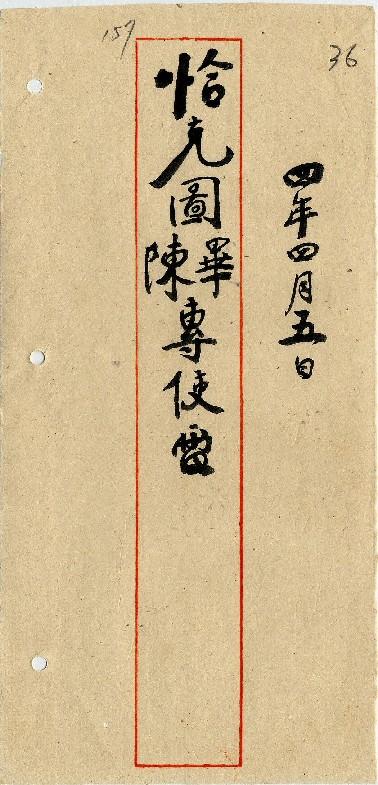 36
四年四月五日
恰克圖畢陳專使電
157